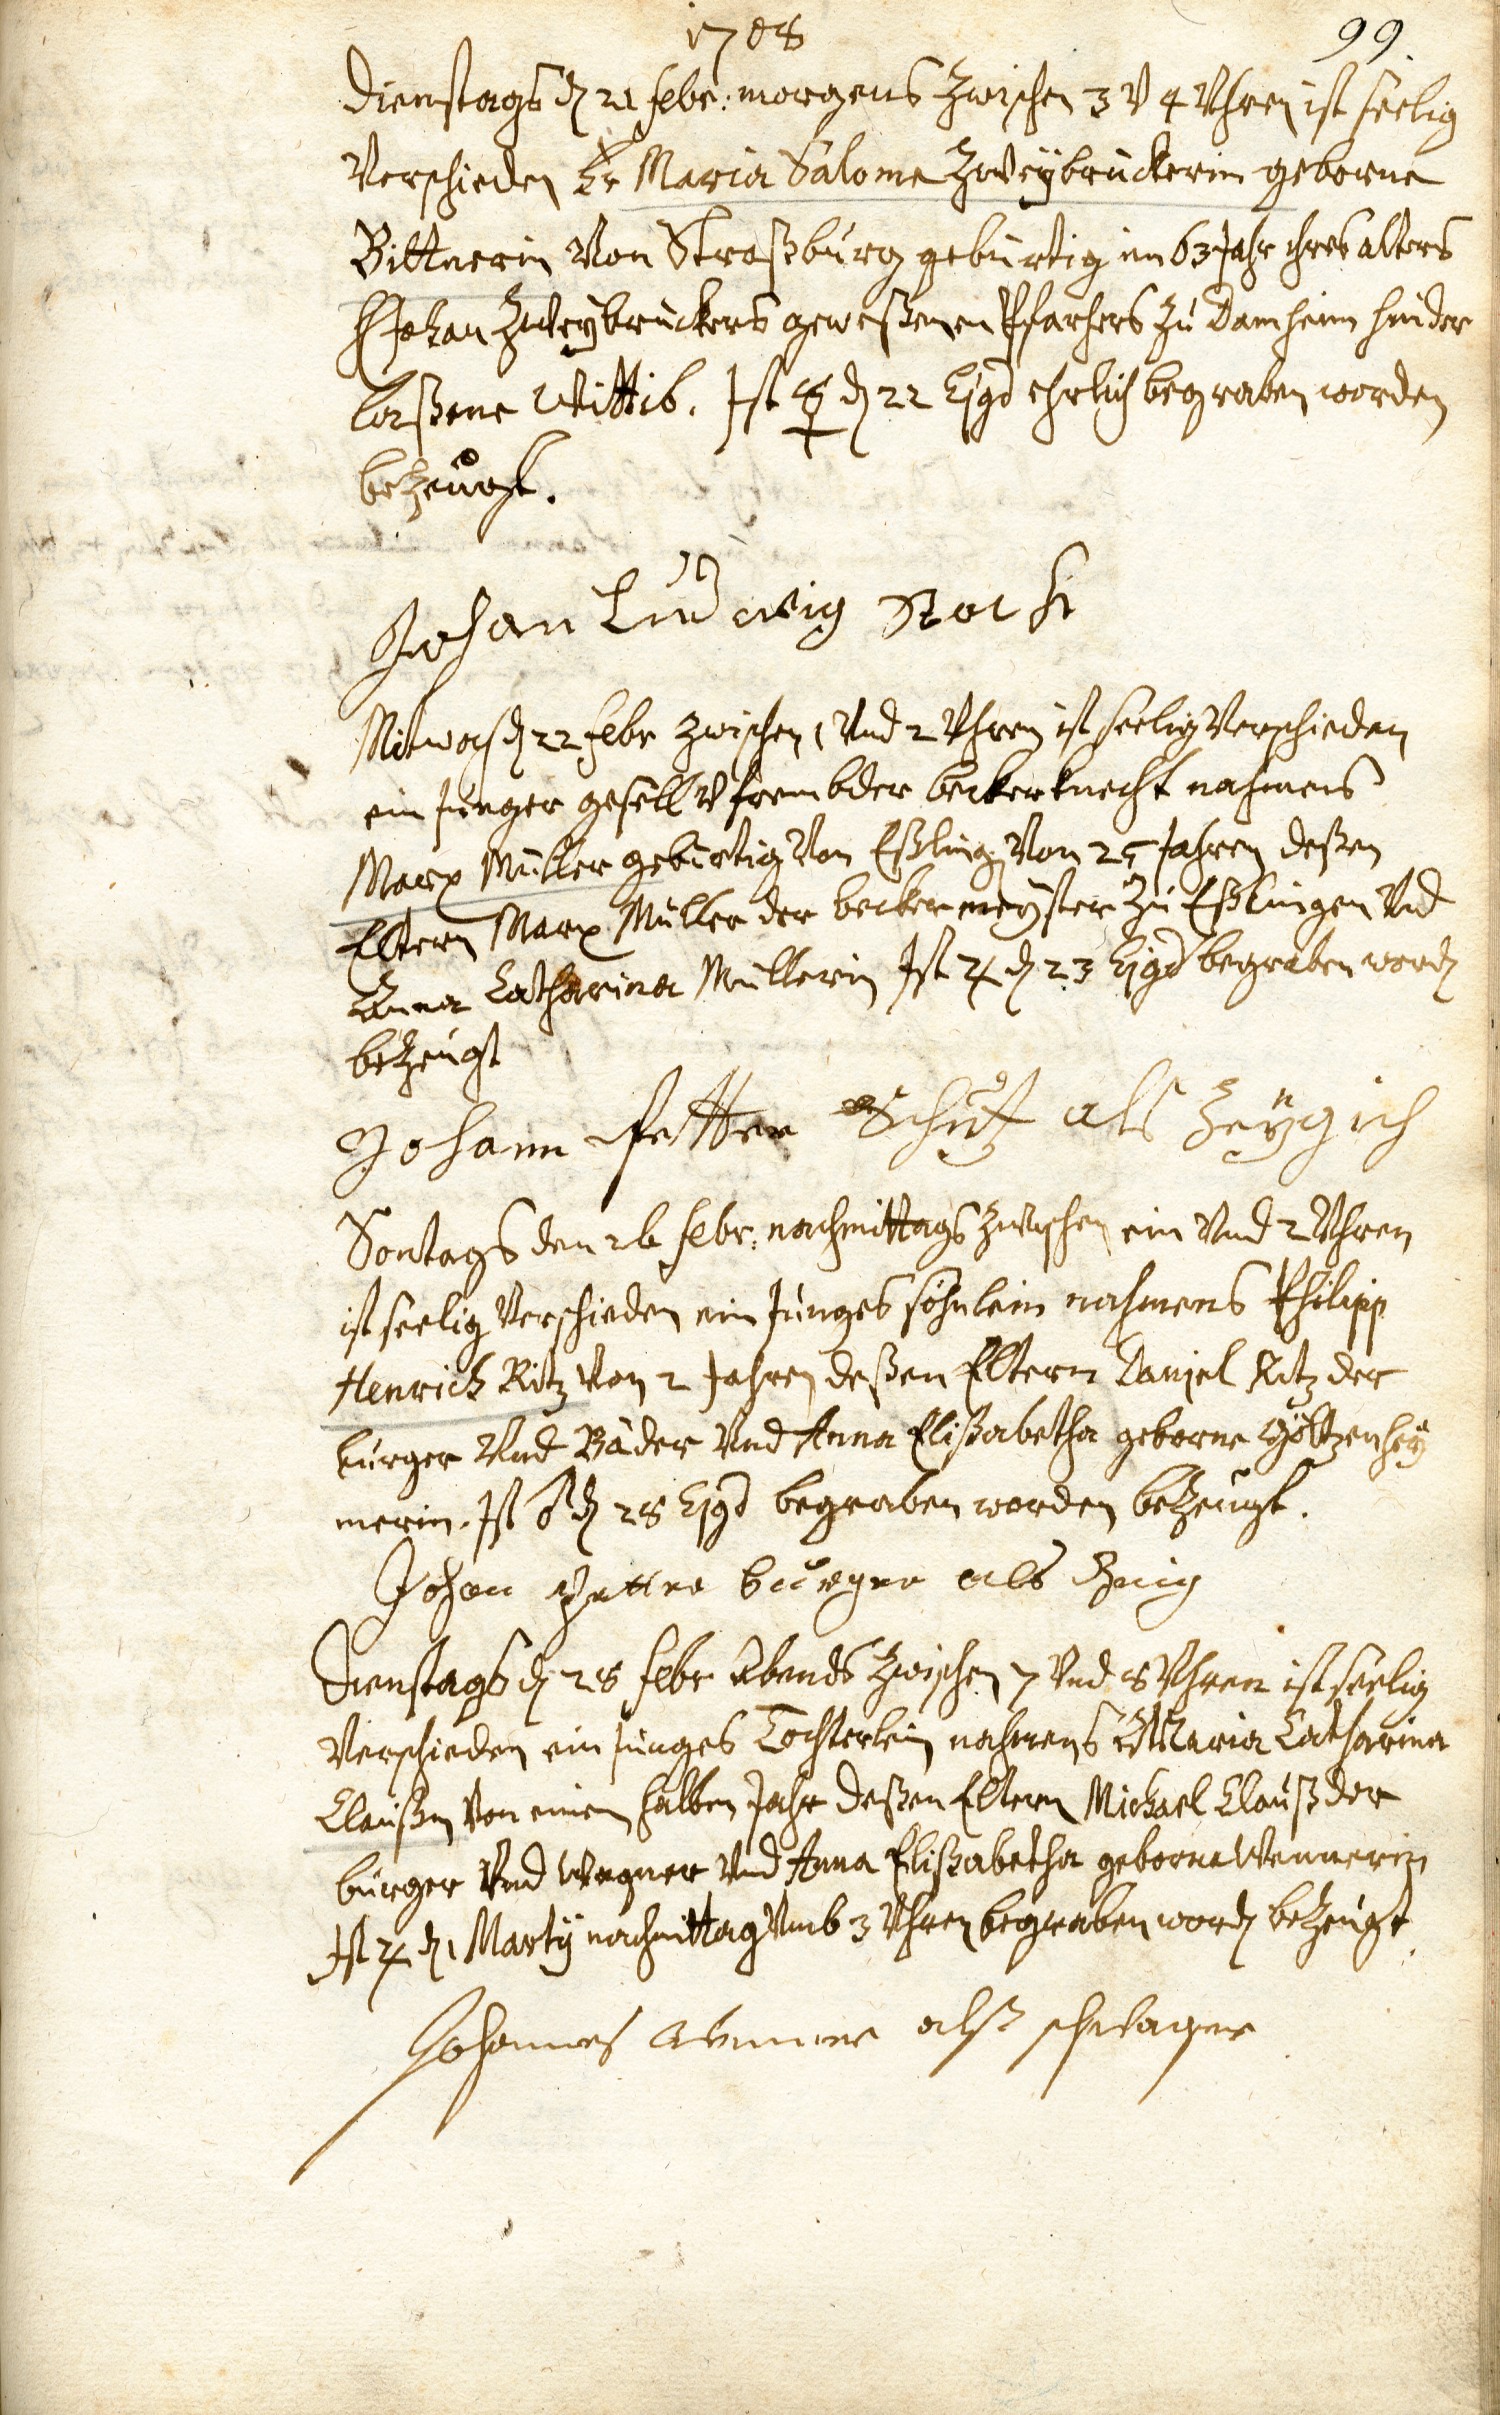 1708
99.
Dienstags dn 21 febr: morgens zwischen 3 v 4 Uhren ist seelig
Verschieden Fr Maria Salome Zweÿbruckerin geborne
Bittnerin Von Straßburg gebürtig im 63 Jahr ihres alters
H Johan Zweÿbruckers geweßenen Pfarhers zu Damheim hinder
laßene Wittib. Ist ☿ dn 22 Ejqd ehrlich begraben worden
bezeugt.
Johan Ludwig
Mitwoch dn 22 febr zwischen 1 Und 2 Uhren ist seelig Verschieden
ein Junger gesell v frembder beckerknecht nahmens
Marx Müller gebürtig Von Eßling Von 25 Jahren deßen
Eltern Marx Müller der beckermeÿster zu Eßlingen Und
Anna Catharina Müllerin Ist ♃ dn 23 Ejqd begraben wordn
bezeugt
Johann Petter Schutz als zeÿg ich
Sontags den 26 febr: nachmittags zwischen ein Und 2 Uhren
ist seelig Verschieden ein Junges söhnlein nahmens Philipp
Henrich Ritz Von 2 Jahren deßen Eltern Daniel Ritz der
burger Und Bäder Und Anna Elißabetha geborne Göltzenheÿ
merin. Ist ♂ dn 28 Ejqd begraben worden bezeugt.
Johan Petter burger als Zeuig
Dienstags dn 28 febr Abends zwischen 7 Und 8 Uhren ist seelig
Verschieden ein Junges Tochterlein nahmens Maria Catharina
Claußin Von einem halben Jahr deßen Eltern Michael Clauß der
bürger Und Wagner Und Anna Elißabetha geborne Wennerin
Ist ♃ dn 1 Martÿ nachmittag Umb 3 Uhren begraben wordn bezeugt.
Johannes alß schwager